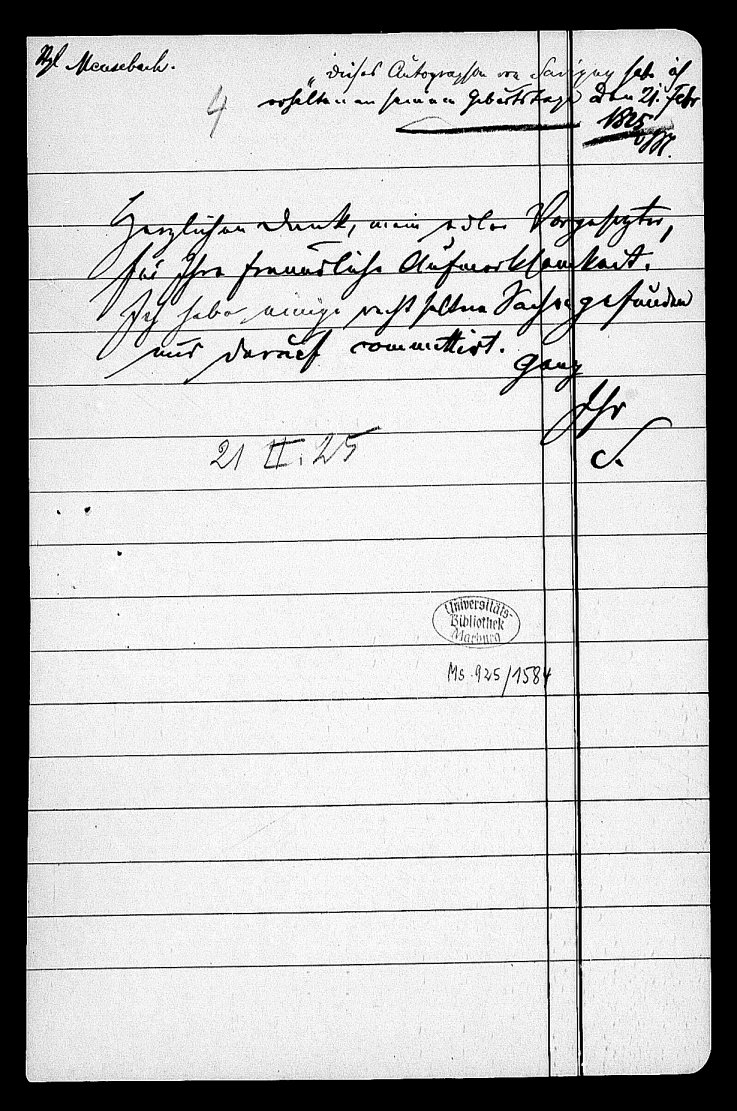 Vgl Meusebach.
"dieses Autographon von Savigny habe ich
erhalten an seinem Geburtstage den 21. Febr
1825
M.
4
Herzlichen Dank, mein edler Vorgesetzter,
für Ihre freundliche Aufmerksamkeit.
Ich habe einige recht seltene Sachen gefunden
und darauf committirt.
Ganz
Ihr
S.
21 II. 25
Universitäts-
Bibliothek
Marburg
Ms. 925/1584